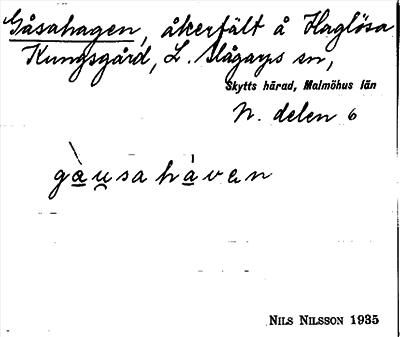 Gåsahagen, åkerfält å Haglösa
Kungsgård, L. Slågarps sn,
Skytts härad, Malmöhus län
N. delen 6
gàu̯sa hávan
NILS NILSSON 1935